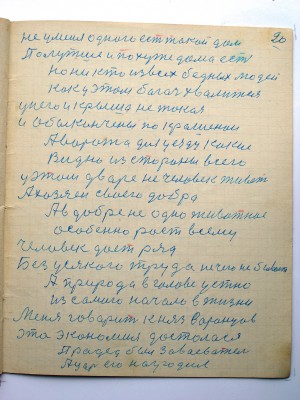 20
не у меня одного ест такой дом
Полутше и похуже дома ест
Но ни кто из всех бедных людей
как у этом богач хвалится
у него и крыша не такая
и обыкончены по крашеной
А ворота для уезду какие
Видно из стороны всего
у этом дваре не человек живёт
А хозяен своего добра
А в добре не одно животное
особенно рост всему
человек дает ряд
Без усякого труда ничего не бывает
А природа в голове устно
из самого начало в жизни
Меня говорит княз Варанцов
эта экономия досталося
Прадед был завоеватель
А цар его наградил